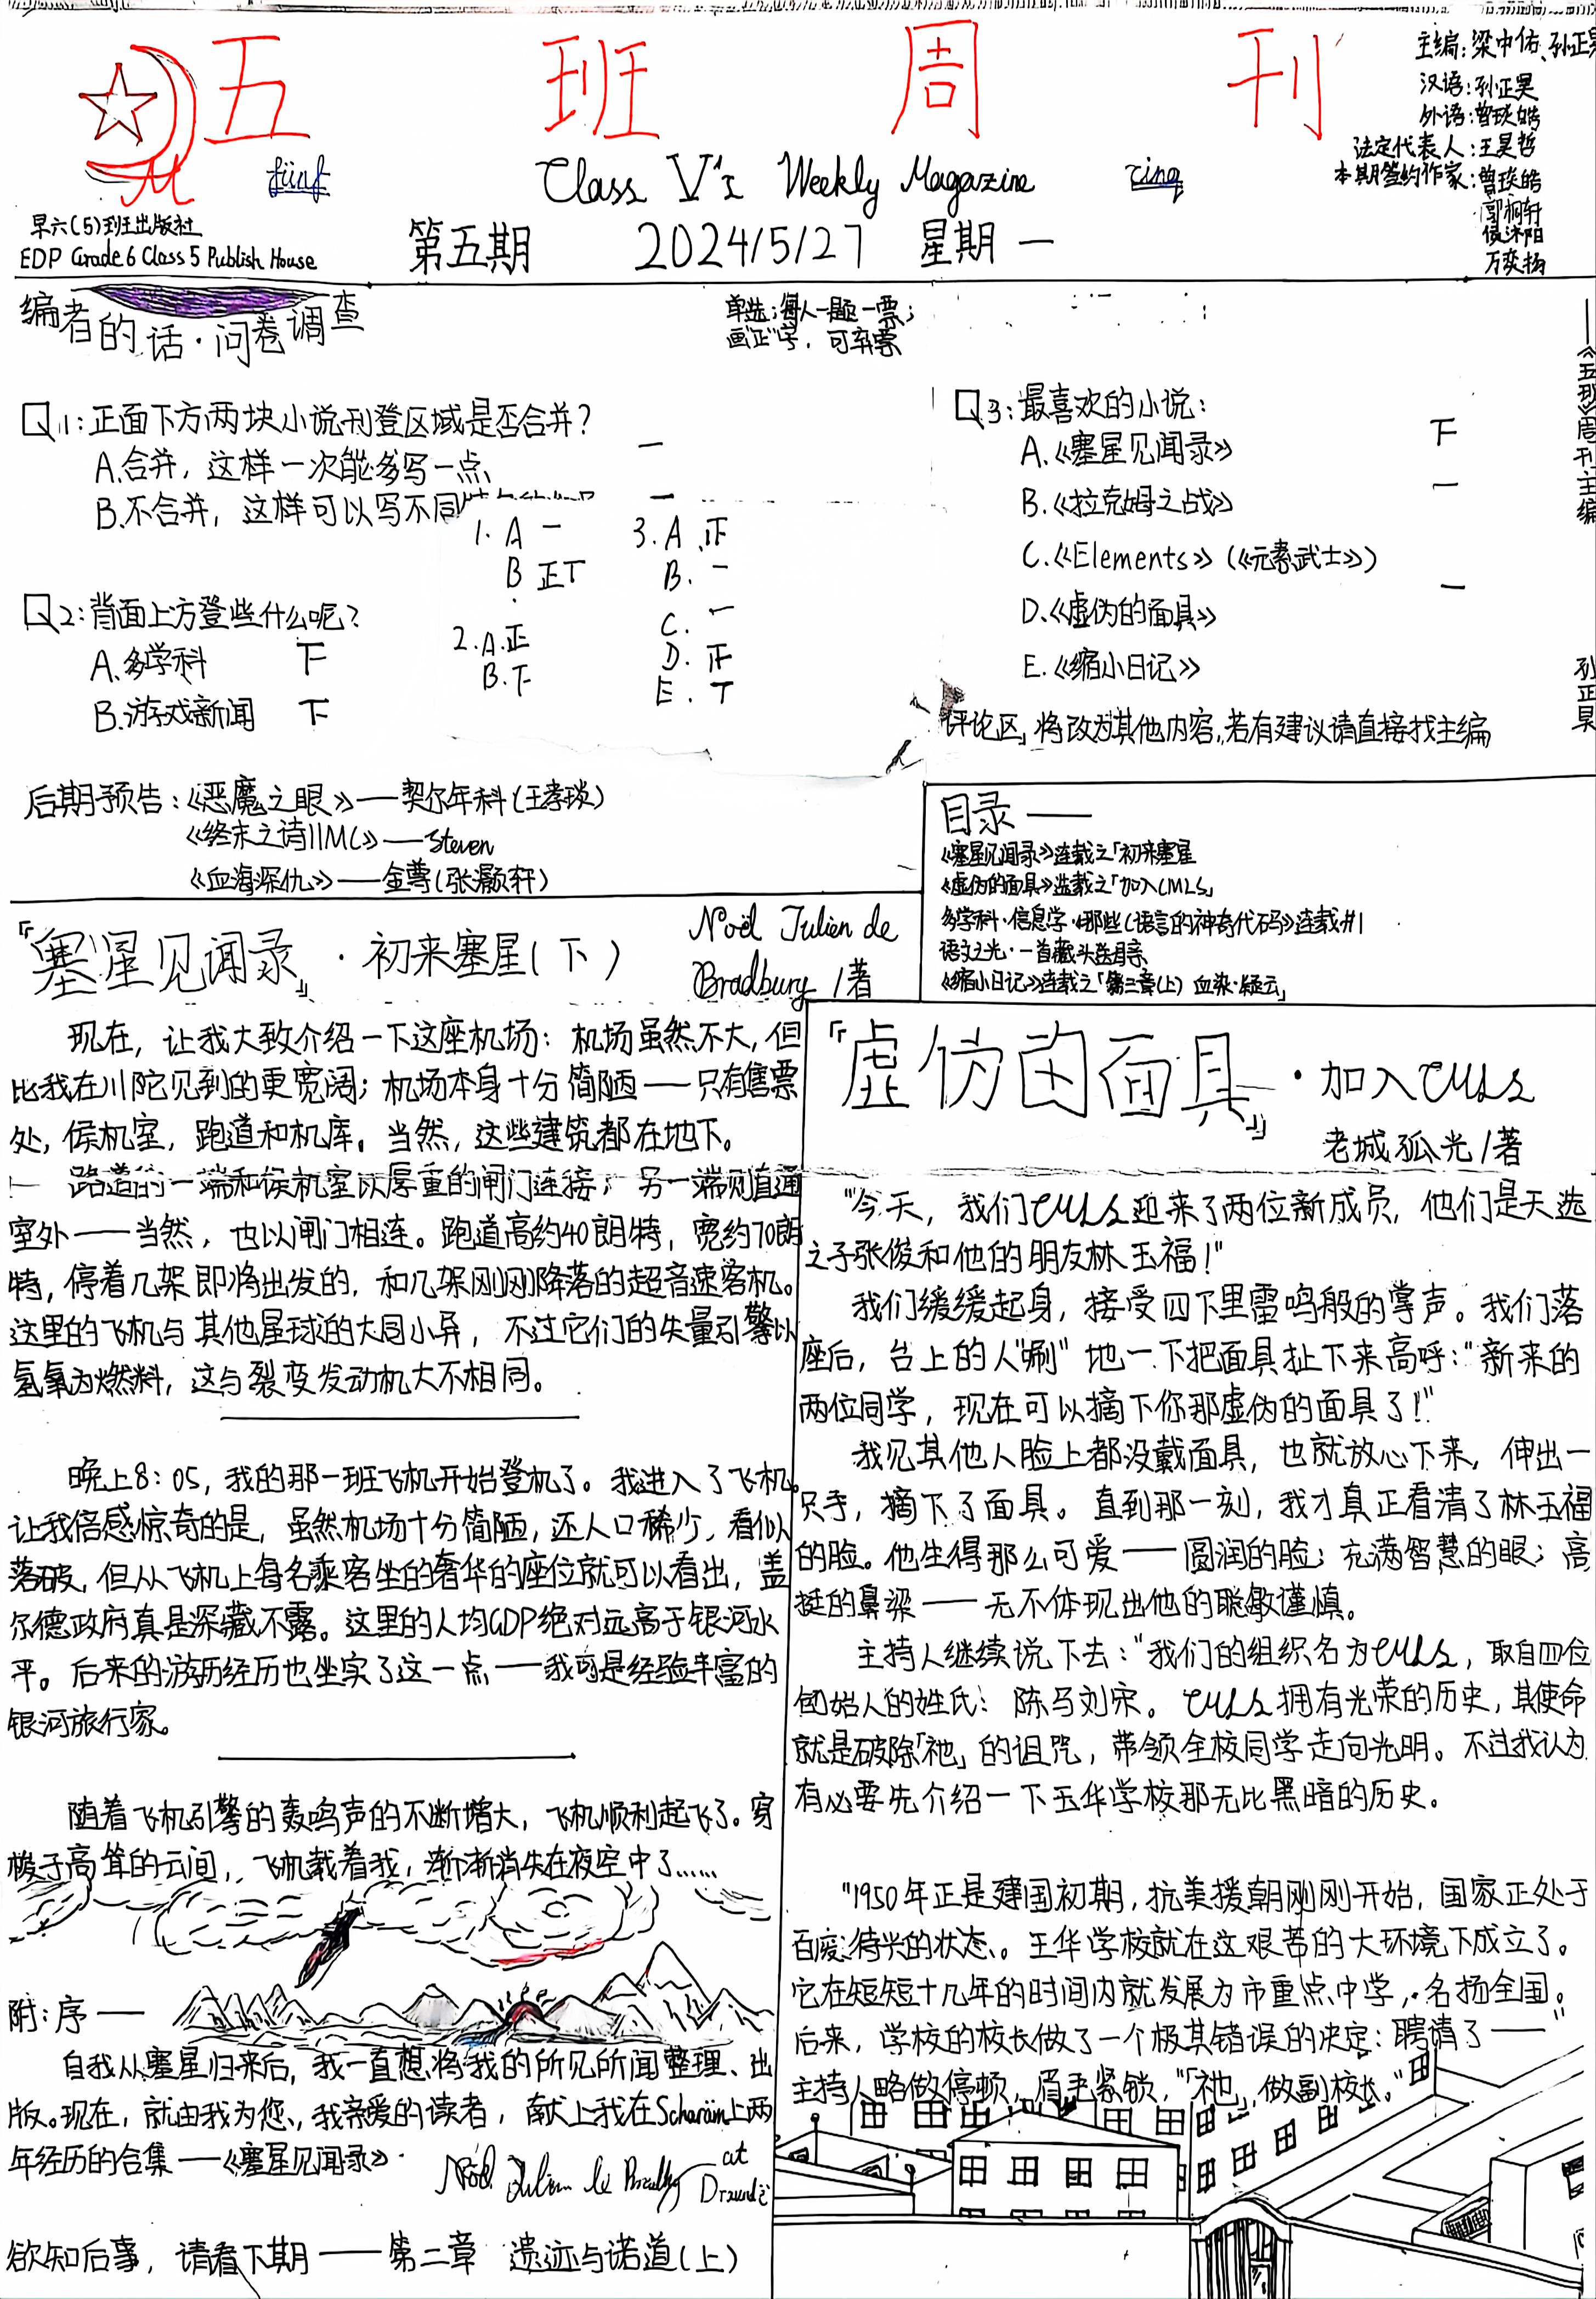 五班周刊
fünf
Class V's Weekly Magazine
cinq
主编:梁中佑、孙正昊
汉语:孙正昊
外语:曾琰皓
法定代表人:王昊哲
本期签约作家:曾琰皓
郭桐轩
侯沐阳
万奕扬
M
早六(5)班出版社
EDP Grade 6 Class 5 Publish House
第五期 2024/5/27 星期一
编者的话·问卷调查
单选;每人一题一票;
画"正"字,可弃票
Q1:正面下方两块小说刊登区域是否合并?
A.合并,这样一次能多写一点 一
B.不合并,这样可以写不同 一
Q2:背面上方登些什么呢?
A.多学科 下
B.游戏新闻 下
1. A 一
B 正丅
2. A.正
B.下
3. A.正
B. 一
C. 一
D. 正
E. 丅
Q3:最喜欢的小说:
A.《塞星见闻录》 下
B.《拉克姆之战》 一
C.《Elements》(《元素武士》)
D.《虚伪的面具》 一
E.《缩小日记》
评论区」将改为其他内容,若有建议请直接找主编
——《五班周刊》主编 孙正昊
后期预告:《恶魔之眼》——契尔年科(王孝琰)
《终末之诗||MC》——Steven
《血海深仇》——金尊(张灏轩)
目录——
《塞星见闻录》连载之「初来塞星
《虚伪的面具》连载之「加入CMLS」
多学科·信息学·《那些C语言的神奇代码》连载#1
语文之光·一首藏头送母亲
《缩小日记》连载之「第三章(上) 血染·疑云」
『塞星见闻录』·初来塞星(下)
Noël Julien de Bradbury /著
现在,让我大致介绍一下这座机场:机场虽然不大,但
比我在川陀见到的更宽阔;机场本身十分简陋——只有售票
处,候机室,跑道和机库。当然,这些建筑都在地下。
跑道的一端和候机室以厚重的闸门连接;另一端则直通
室外——当然,也以闸门相连。跑道高约40朗特,宽约70朗
特,停着几架即将出发的,和几架刚刚降落的超音速客机。
这里的飞机与其他星球的大同小异,不过它们的矢量引擎以
氢氧为燃料,这与裂变发动机大不相同。
晚上8:05,我的那一班飞机开始登机了。我进入了飞机。
让我倍感惊奇的是,虽然机场十分简陋,还人口稀少,看似
落破,但从飞机上每名乘客坐的奢华的座位就可以看出,盖
尔德政府真是深藏不露。这里的人均GDP绝对远高于银河水
平。后来的游历经历也坐实了这一点——我可是经验丰富的
银河旅行家。
随着飞机引擎的轰鸣声的不断增大,飞机顺利起飞了。穿
梭于高耸的云间,飞机载着我,渐渐消失在夜空中了……
附:序——
自我从塞星归来后,我一直想将我的所见所闻整理、出
版。现在,就由我为您、我亲爱的读者,献上我在Scharäm上两
年经历的合集——《塞星见闻录》.
Noël Julien de Bradbury at
欲知后事,请看下期——第二章 遗迹与诺道(上)
『虚伪的面具』·加入CMLS
老城孤光/著
"今天,我们CMLS迎来了两位新成员,他们是天选
之子张俊和他的朋友林玉福!"
我们缓缓起身,接受四下里雷鸣般的掌声。我们落
座后,台上的人"唰"地一下把面具扯下来高呼:"新来的
两位同学,现在可以摘下你那虚伪的面具了!"
我见其他人脸上都没戴面具,也就放心下来,伸出一
只手,摘下了面具。直到那一刻,我才真正看清了林玉福
的脸。他生得那么可爱——圆润的脸;充满智慧的眼;高
挺的鼻梁——无不体现出他的聪敏谨慎。
主持人继续说下去:"我们的组织名为CMLS,取自四位
创始人的姓氏:陈马刘宋。CMLS拥有光荣的历史,其使命
就是破除「祂」的诅咒,带领全校同学走向光明。不过我认为
有必要先介绍一下玉华学校那无比黑暗的历史。
"1950年正是建国初期,抗美援朝刚刚开始,国家正处于
百废待兴的状态。玉华学校就在这艰苦的大环境下成立了。
它在短短十几年的时间内就发展为市重点中学,名扬全国。
后来,学校的校长做了一个极其错误的决定:聘请了——"
主持人略做停顿,眉毛紧锁,"「祂」做副校长。"